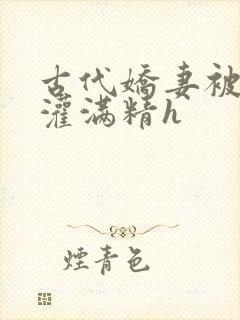 古代嬌妻被
灌滿精h
煙青色